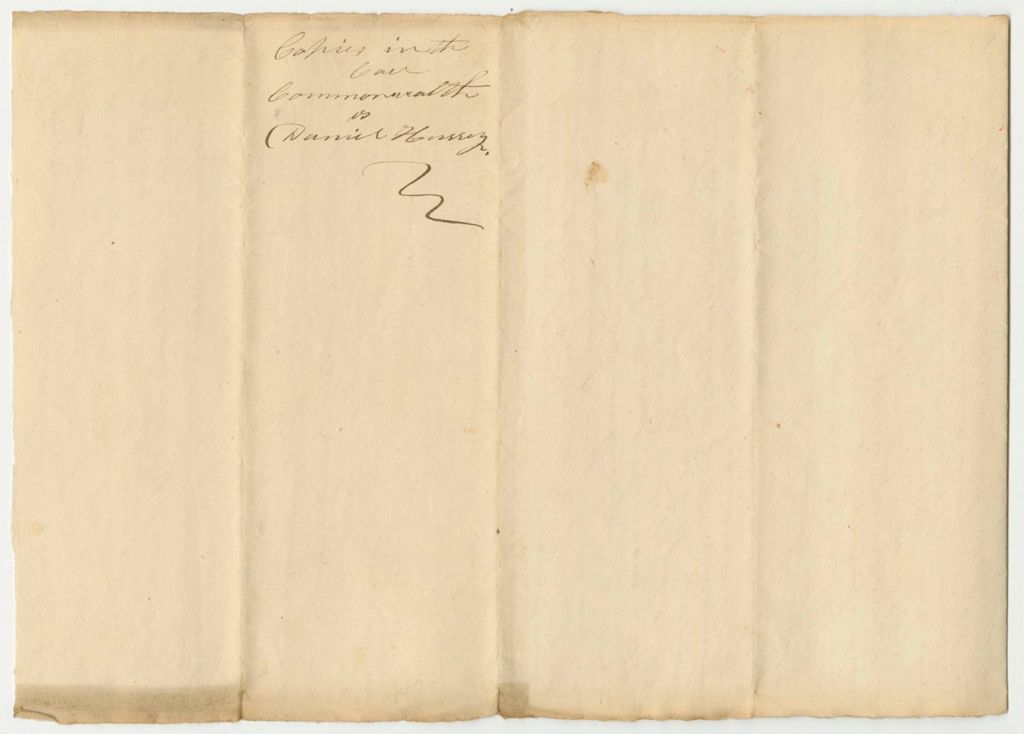 Copies in the
Case
Commonwealth
vs
Daniel Hussey.